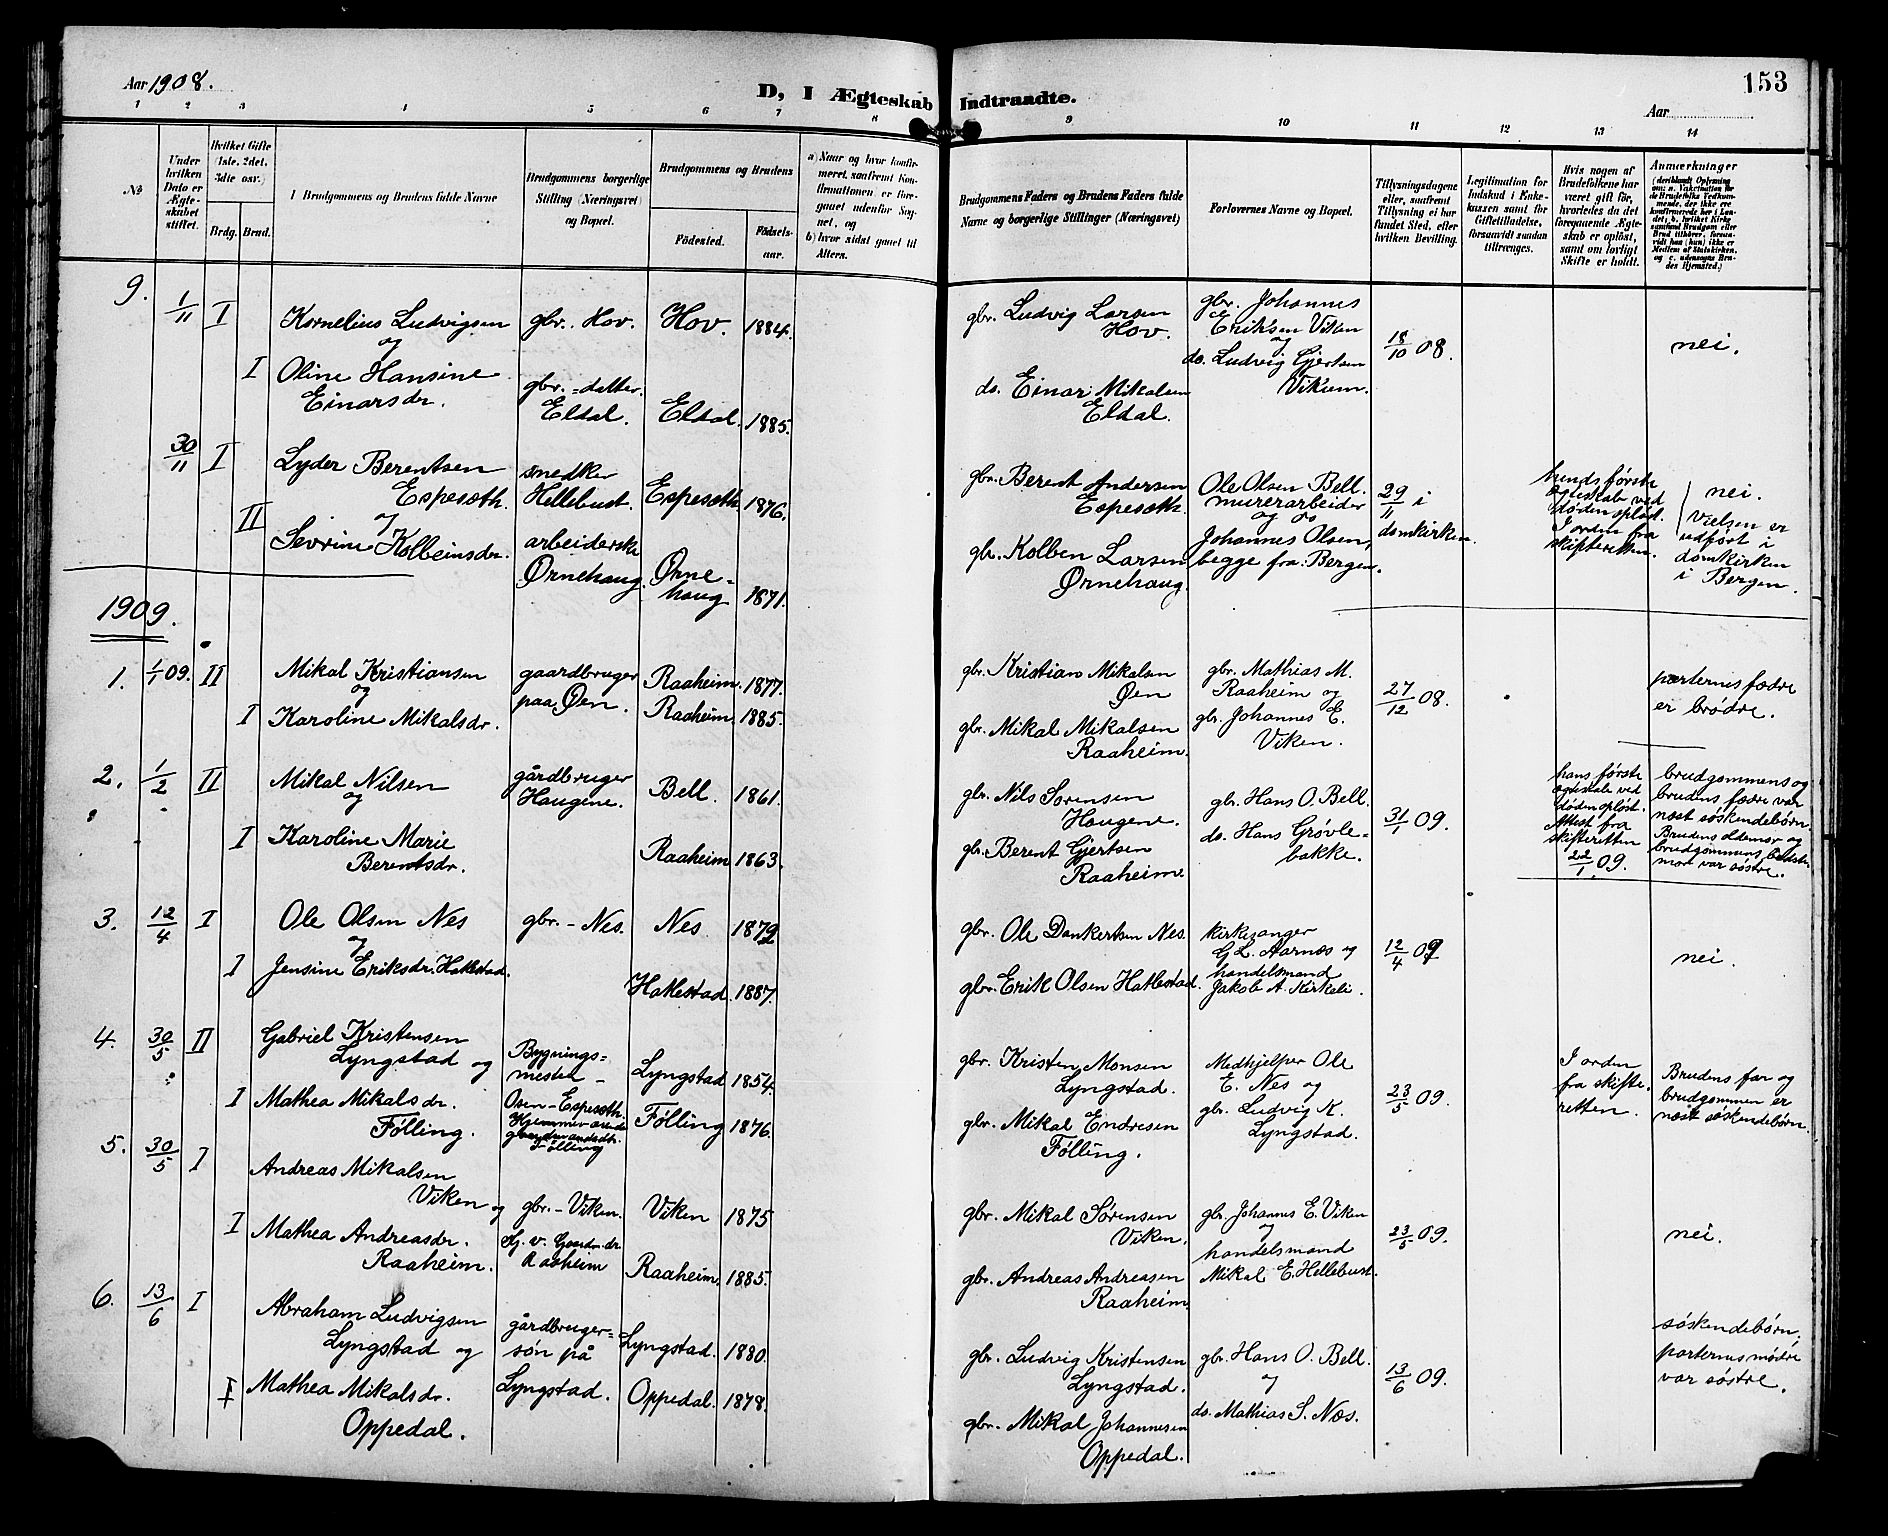 Aar 1908.
D, I Ægteskab Indtraadte.
153
Aar
1 2 3 4 5 6 7 8 9 10 11 12 13 14
No
Under hvilken Dato er Ægteskabet stiftet.
Hvilket Gifte (1ste, 2det, 3die osv.)
Brdg.
Brud.
Brudgommens og Brudens fulde Navne
Brudgommens borgerlige Stilling (Næringsvei) og Bopæl.
Brudgommens og Brudens
Fødested.
Fødselsaar.
a) Naar og hvor konfirmeret, saafremt Konfirmationen er foregaaet udenfor Sognet, og
b) hvor sidst gaaet til Alters.
Brudgommens Faders og Brudens Faders fulde Navne og borgerlige Stillinger (Næringsvei)
Forlovernes Navne og Bopæl.
Tillysningsdagene eller, saafremt Tillysning ei har fundet Sted, efter hvilken Bevilling.
Legitimation for Indskud i Enkekassen samt for Giftetilladelse, forsaavidt saadan tiltrænges.
Hvis nogen af Brudefolkene har været gift før, hvorledes da det foregaaende Ægteskab er opløst, samt om lovligt Skifte er holdt.
Anmærkninger
9.
1/11 I
Kornelius Ludvigsen
og
gbr. Hov.
Hov.
1884.
gbr. Ludvig Larsen
Hov.
gbr. Johannes
Eriksen Viken
og
ds. Ludvig Gjertsen
Vikum.
18/10 08.
nei.
I
Oline Hansine
Einarsdr.
gbr.-datter.
Eldal.
Eldal.
1885.
ds. Einar Mikalsen
Eldal.
30/11 I
Lyder Berentsen
Espeseth.
og
snedker
Hellebust.
Espeseth.
1876.
gbr. Berent Andersen
Espeseth.
Ole Olsen Bell.
murerarbeider
og do
Johannes Olsen,
begge fra Bergen.
29/11 i
domkirken.
hendes første
ægteskab ved
døden opløst.
I orden fra
skifteretten.
nei.
Vielsen er
udført i
domkirken
i Bergen.
II
Sevrine Kolbeinsdr.
arbeiderske
Ørnehaug.
Ørne-
haug
1871.
gbr. Kolben Larsen
Ørnehaug.
1909.
1.
1/1 09. II
Mikal Kristiansen
og
gaardbruger
paa Øen.
Raaheim.
1877.
gbr. Kristian Mikalsen
Øen
gbr. Mathias M.
Raaheim og
gbr. Johannes E.
Viken.
27/12 08.
parternes fædre
er brødre.
I
Karoline Mikalsdr.
Raaheim.
1885.
gbr. Mikal Mikalsen
Raaheim.
2.
1/2 II
Mikal Nilsen
og
gårdbruger
Haugene.
Bell.
1861.
gbr. Nils Sørensen
Haugene.
gbr. Hans O. Bell.
ds. Hans Grøvle-
bakke.
31/1 09.
hans første
ægteskab ved
døden opløst.
Attest fra
skifteretten
22/1 09.
brudgommens og
brudens fædre var
næst søskendebørn.
Brudens oldemor og
brudgommens bedste-
mor var søstre.
I
Karoline Marie
Berentsdr.
Raaheim
1863.
gbr. Berent Gjertsen
Raaheim.
3.
12/4 I
Ole Olsen Nes
og
gbr. - Nes.
Nes.
1879
gbr. Ole Dankertsen Nes.
kirkesanger
G. L. Aarnæs og
handelsmand
Jakob A. Kirkeli.
12/4 09
nei.
I
Jensine Eriksdr. Hatlestad.
Hatlestad.
1887.
gbr. Erik Olsen Hatlestad.
4.
30/5 II
Gabriel Kristensen
Lyngstad og
Bygnings-
mester -
Osen - Espeseth.
Lyngstad
1854.
gbr. Kristen Monsen
Lyngstad.
Medhjelper Ole
E. Nes og
gbr. Ludvig K.
Lyngstad.
23/5 09.
I orden
fra skifte-
retten.
Brudens far og
brudgommen er
næst søskendebørn.
I
Mathea Mikalsdr.
Følling.
Hjemmeværende
Følling
Følling
1876.
gbr. Mikal Endresen
Følling.
5.
30/5 I
Andreas Mikalsen
Viken og
gbr. - Viken.
Viken
1875
gbr. Mikal Sørensen
Viken.
gbr. Johannes E. Viken
og
handelsmand
Mikal E. Hellebust.
23/5 09.
nei.
I
Mathea Andreasdr.
Raaheim.
Hj. v. Gaardbr. dr.
Raaheim
Raaheim.
1885.
gbr. Andreas Andreasen
Raaheim.
6.
13/6 I
Abraham Ludvigsen
Lyngstad og
gårdbruger-
søn på
Lyngstad.
Lyngstad.
1880.
gbr. Ludvig Kristensen
Lyngstad.
gbr. Hans O. Bell.
og
ds. Mathias S. Næs.
13/6 09.
søskendebørn.
parternes mødre
var søstre.
I
Mathea Mikalsdr.
Oppedal.
Oppedal.
1878.
gbr. Mikal Johannesen
Oppedal.